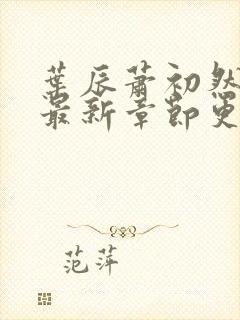 葉辰蕭初然
最新章節更
范萍